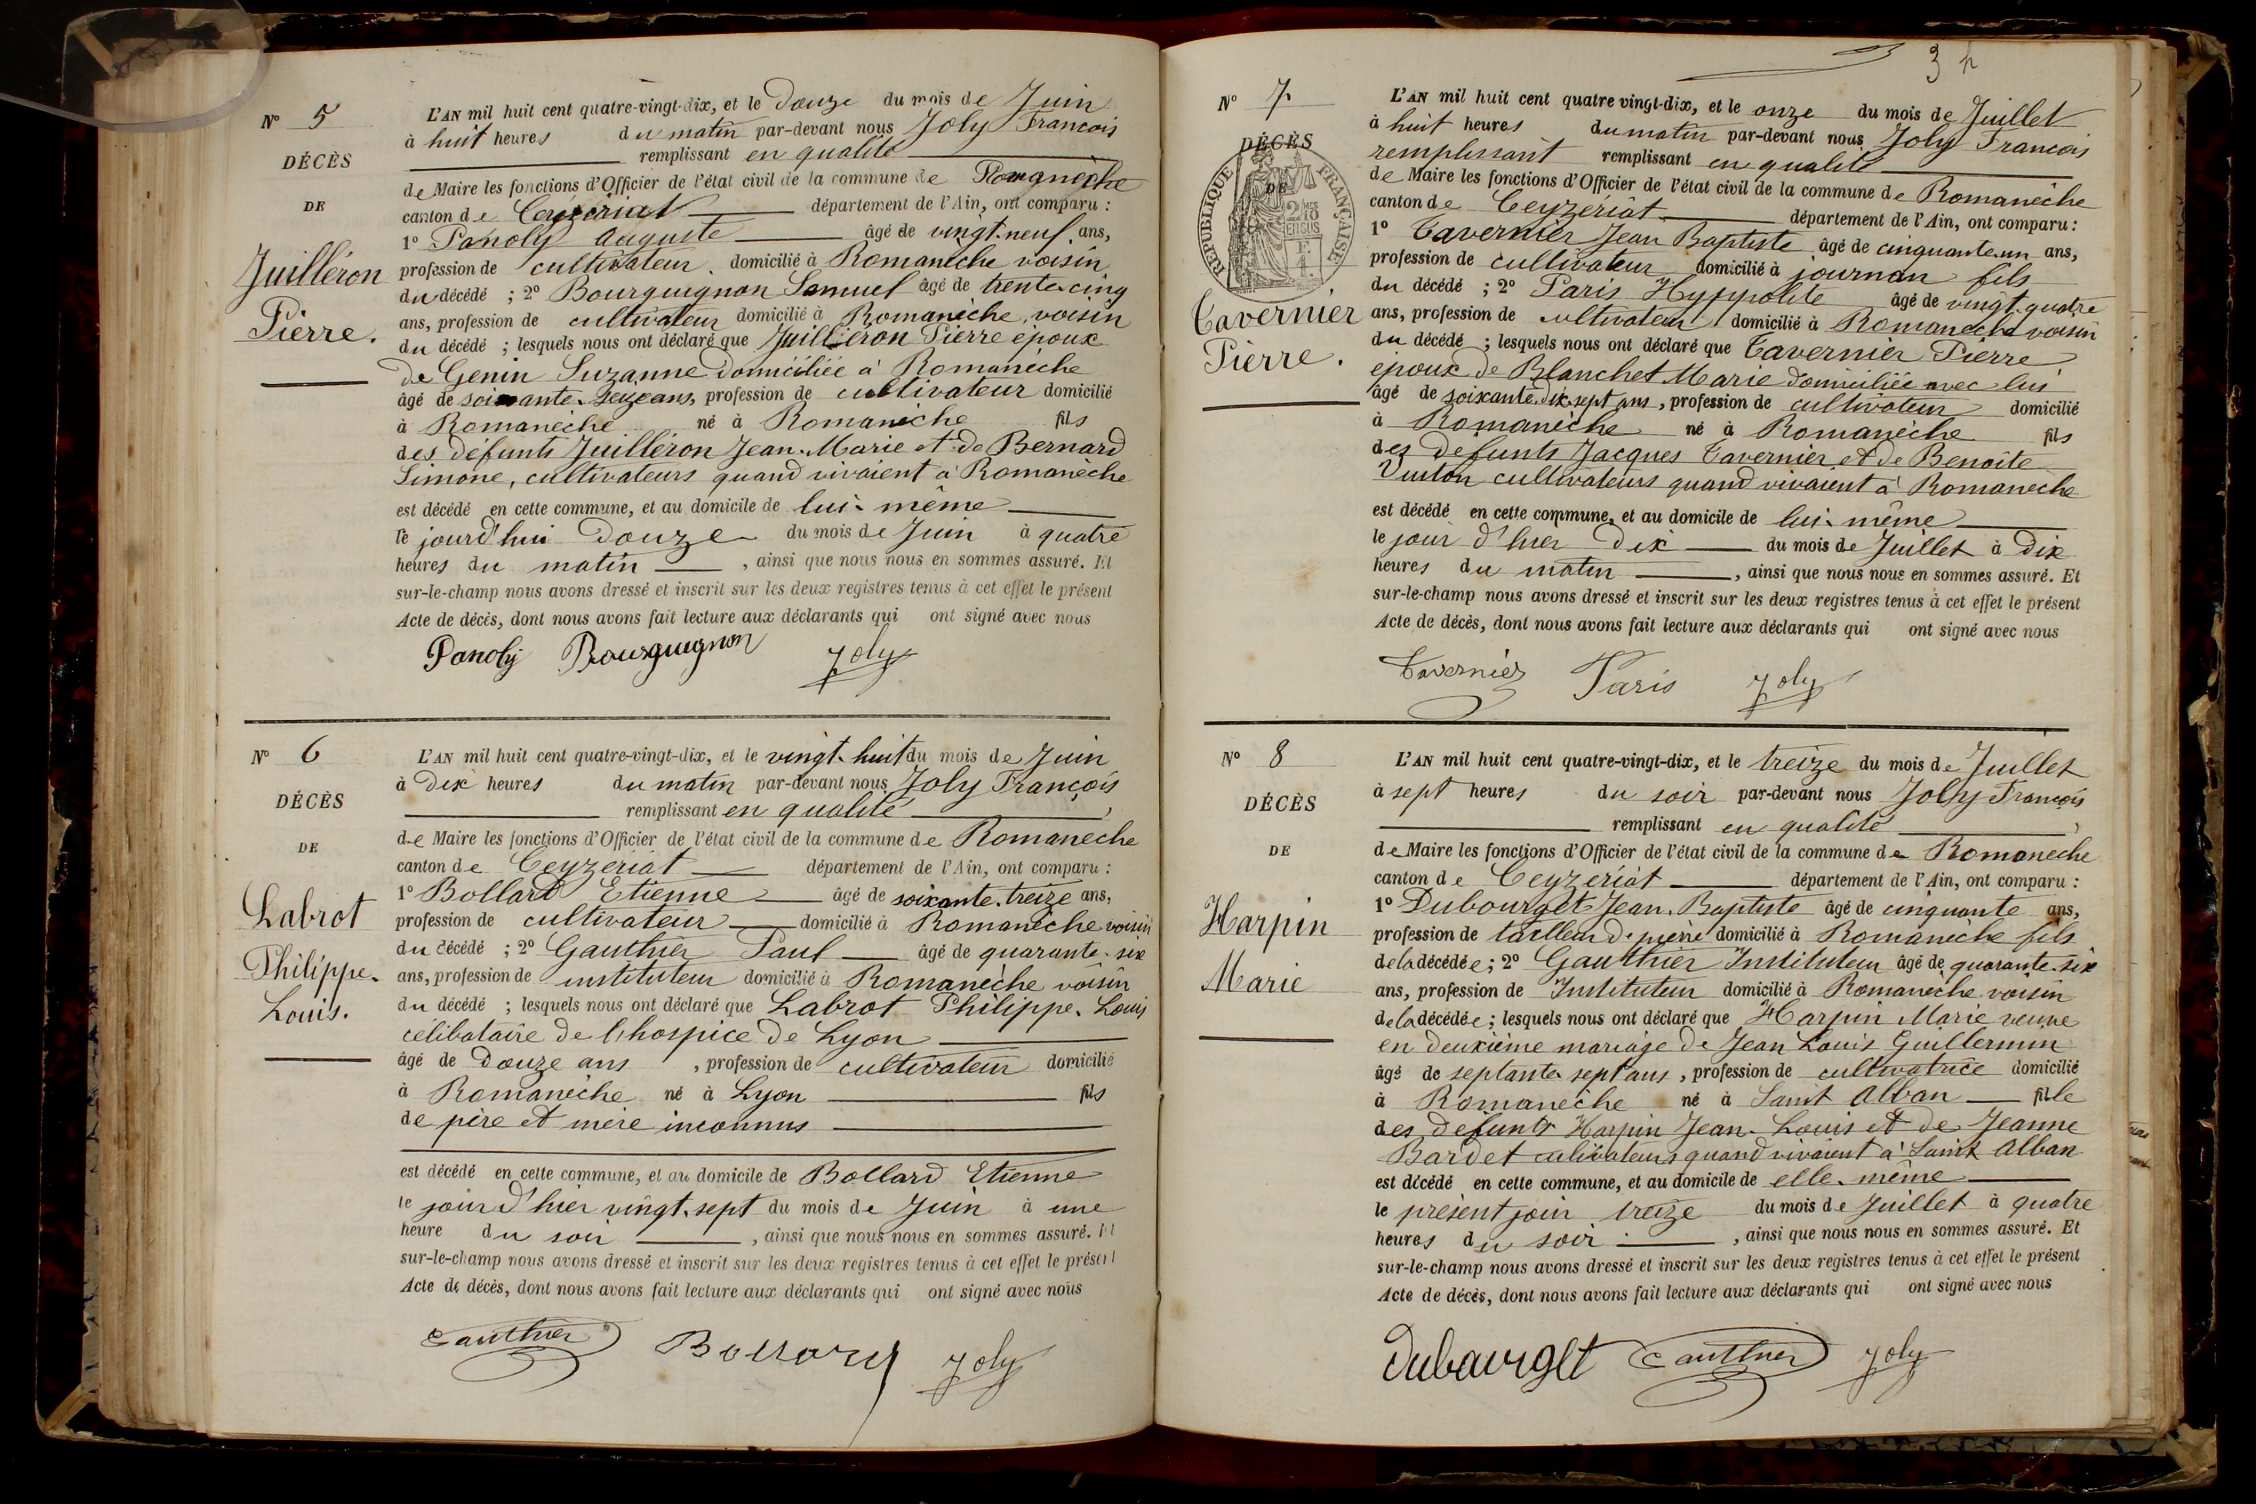 N° 5
DÉCÈS
DE
Juilléron
Pierre.
L'AN mil huit cent quatre-vingt-dix, et le douze du mois de Juin
à huit heures du matin par-devant nous Joly François
remplissant en qualité
de Maire les fonctions d'Officier de l'état civil de la commune de Romanèche
canton de Ceyzériat département de l'Ain, ont comparu :
1° Panoly Auguste âgé de vingt-neuf ans,
profession de cultivateur domicilié à Romanèche voisin
du décédé ; 2° Bourguignon Samuel âgé de trente-cinq
ans, profession de cultivateur domicilié à Romanèche, voisin
du décédé ; lesquels nous ont déclaré que Juilléron Pierre époux
de Genin Suzanne domiciliée à Romanèche
âgé de soixante-seize ans, profession de cultivateur domicilié
à Romanèche né à Romanèche fils
des défunts Juilléron Jean-Marie et de Bernard
Simone, cultivateurs quand vivaient à Romanèche
est décédé en cette commune, et au domicile de lui-même
le jourd'hui douze du mois de Juin à quatre
heures du matin , ainsi que nous nous en sommes assuré. Et
sur-le-champ nous avons dressé et inscrit sur les deux registres tenus à cet effet le présent
Acte de décès, dont nous avons fait lecture aux déclarants qui ont signé avec nous
Panoly Bourguignon Joly
N° 6
DÉCÈS
DE
Labrot
Philippe-
Louis.
L'AN mil huit cent quatre-vingt-dix, et le vingt-huit du mois de Juin
à dix heures du matin par-devant nous Joly François
remplissant en qualité ,
de Maire les fonctions d'Officier de l'état civil de la commune de Romanèche
canton de Ceyzériat département de l'Ain, ont comparu :
1° Bollard Etienne âgé de soixante-treize ans,
profession de cultivateur domicilié à Romanèche voisin
du décédé ; 2° Gauthier Paul âgé de quarante-six
ans, profession de instituteur domicilié à Romanèche voisin
du décédé ; lesquels nous ont déclaré que Labrot Philippe-Louis
célibataire de l'hospice de Lyon
âgé de douze ans , profession de cultivateur domicilié
à Romanèche né à Lyon fils
de père et mère inconnus
est décédé en cette commune, et au domicile de Bollard Etienne
le jour d'hier vingt-sept du mois de Juin à une
heure du soir , ainsi que nous nous en sommes assuré. Et
sur-le-champ nous avons dressé et inscrit sur les deux registres tenus à cet effet le présent
Acte de décès, dont nous avons fait lecture aux déclarants qui ont signé avec nous
Gauthier Bollard Joly
3
N° 7
DÉCÈS
DE
RÉPUBLIQUE FRANÇAISE
2/10 EN SUS
Tavernier
Pierre.
L'AN mil huit cent quatre vingt-dix, et le onze du mois de Juillet
à huit heures du matin par-devant nous Joly François
remplissant remplissant en qualité
de Maire les fonctions d'Officier de l'état civil de la commune de Romanèche
canton de Ceyzériat département de l'Ain, ont comparu :
1° Tavernier Jean Baptiste âgé de cinquante-un ans,
profession de cultivateur domicilié à journan fils
du décédé ; 2° Paris Hyppolite âgé de vingt-quatre
ans, profession de cultivateur domicilié à Romanèche voisin
du décédé ; lesquels nous ont déclaré que Tavernier Pierre
époux de Blanchet Marie domiciliée avec lui
âgé de soixante-dix-sept ans, profession de cultivateur domicilié
à Romanèche né à Romanèche fils
des défunts Jacques Tavernier et de Benoite
cultivateurs quand vivaient à Romanèche
est décédé en cette commune, et au domicile de lui-même
le jour d'hier dix du mois de Juillet à dix
heures du matin , ainsi que nous nous en sommes assuré. Et
sur-le-champ nous avons dressé et inscrit sur les deux registres tenus à cet effet le présent
Acte de décès, dont nous avons fait lecture aux déclarants qui ont signé avec nous
Tavernier Paris Joly
N° 8
DÉCÈS
DE
Harpin
Marie
L'AN mil huit cent quatre-vingt-dix, et le treize du mois de Juillet
à sept heures du soir par-devant nous Joly François
remplissant en qualité ,
de Maire les fonctions d'Officier de l'état civil de la commune de Romanèche
canton de Ceyzériat département de l'Ain, ont comparu :
1° Dubourget Jean-Baptiste âgé de cinquante ans,
profession de tailleur de pierre domicilié à Romanèche fils
de la décédée ; 2° Gauthier Instituteur âgé de quarante-six
ans, profession de Instituteur domicilié à Romanèche voisin
de la décédée ; lesquels nous ont déclaré que Harpin Marie veuve
en deuxième mariage de Jean Louis Guillermin
âgé de septante-sept ans, profession de cultivatrice domicilié
à Romanèche né à Saint Alban fille
des défunts Harpin Jean-Louis et de Jeanne
Bardet cultivateurs quand vivaient à Saint Alban
est décédé en cette commune, et au domicile de elle-même
le présent jour treize du mois de Juillet à quatre
heures du soir , ainsi que nous nous en sommes assuré. Et
sur-le-champ nous avons dressé et inscrit sur les deux registres tenus à cet effet le présent
Acte de décès, dont nous avons fait lecture aux déclarants qui ont signé avec nous
Dubourget Gauthier Joly